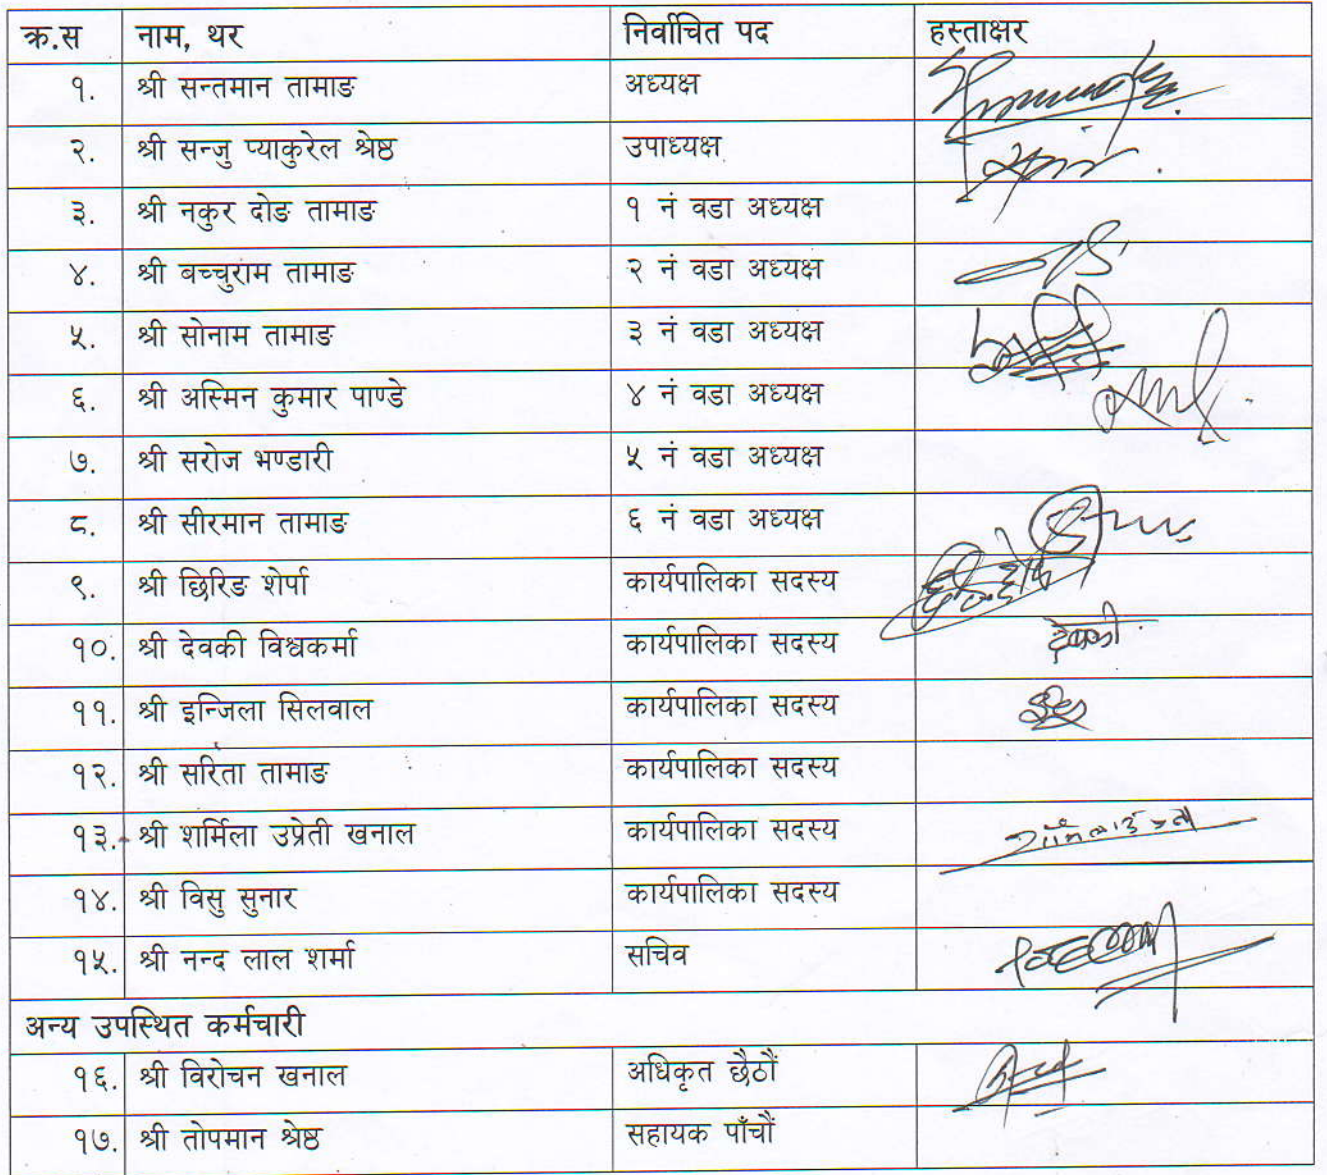 क्र.स नाम, थर निर्वाचित पद हस्ताक्षर
१. श्री सन्तमान तामाङ अध्यक्ष
२. श्री सन्जु प्याकुरेल श्रेष्ठ उपाध्यक्ष
३. श्री नकुर दोङ तामाङ १ नं वडा अध्यक्ष
४. श्री बच्चुराम तामाङ २ नं वडा अध्यक्ष
५. श्री सोनाम तामाङ ३ नं वडा अध्यक्ष
६. श्री अस्मिन कुमार पाण्डे ४ नं वडा अध्यक्ष
७. श्री सरोज भण्डारी ५ नं वडा अध्यक्ष
८. श्री सीरमान तामाङ ६ नं वडा अध्यक्ष
९. श्री छिरिङ शेर्पा कार्यपालिका सदस्य
१०. श्री देवकी विश्वकर्मा कार्यपालिका सदस्य देवकी
११. श्री इन्जिला सिलवाल कार्यपालिका सदस्य
१२. श्री सरिता तामाङ कार्यपालिका सदस्य
१३. श्री शर्मिला उप्रेती खनाल कार्यपालिका सदस्य
१४. श्री विसु सुनार कार्यपालिका सदस्य
१५. श्री नन्द लाल शर्मा सचिव
अन्य उपस्थित कर्मचारी
१६. श्री विरोचन खनाल अधिकृत छैठौं
१७. श्री तोपमान श्रेष्ठ सहायक पाँचौं